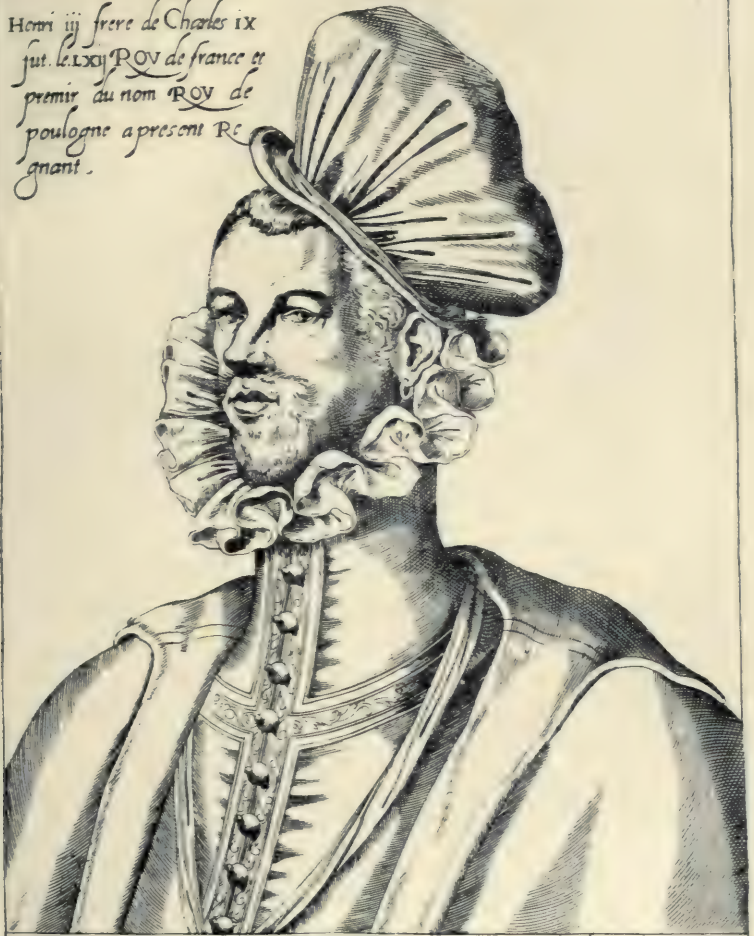 Henri iij frere de Charles IX
fut. le.LXIJ ROV de france et
premir du nom ROV de
poulogne apresent Re
gnant.